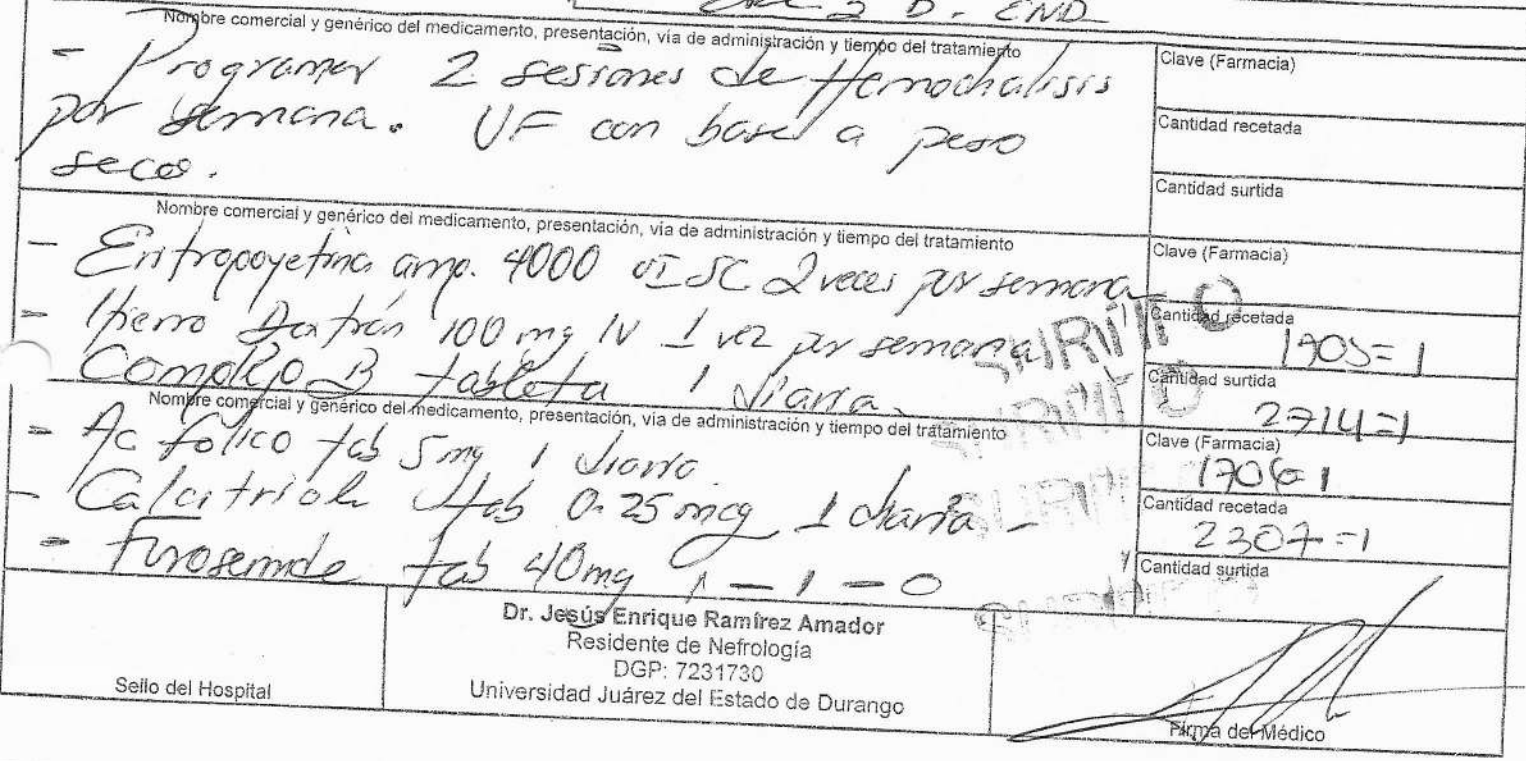 D. END
Nombre comercial y genérico del medicamento, presentación, vía de administración y tiempo del tratamiento
- Programar 2 sesiones de Hemodialisis
por semana. UF con base a peso
seco.
Clave (Farmacia)
Cantidad recetada
Cantidad surtida
Nombre comercial y genérico del medicamento, presentación, vía de administración y tiempo del tratamiento
- Eritropoyetina amp. 4000 UI SC 2 veces por semana
- Hierro Dextrán 100 mg IV 1 vez por semana
Complejo B tableta 1 diaria.
Clave (Farmacia)
Cantidad recetada
1705=1
Cantidad surtida
2714=1
SURTIDO
SURTIDO
Nombre comercial y genérico del medicamento, presentación, vía de administración y tiempo del tratamiento
- Ac fólico tab 5 mg 1 diaria
- Calcitriol tab 0.25 mcg 1 diaria -
- Furosemide tab 40mg 1 - 1 - 0
Clave (Farmacia)
1706=1
Cantidad recetada
2307=1
Cantidad surtida
Sello del Hospital
Dr. Jesús Enrique Ramírez Amador
Residente de Nefrología
DGP: 7231730
Universidad Juárez del Estado de Durango
Firma del Médico